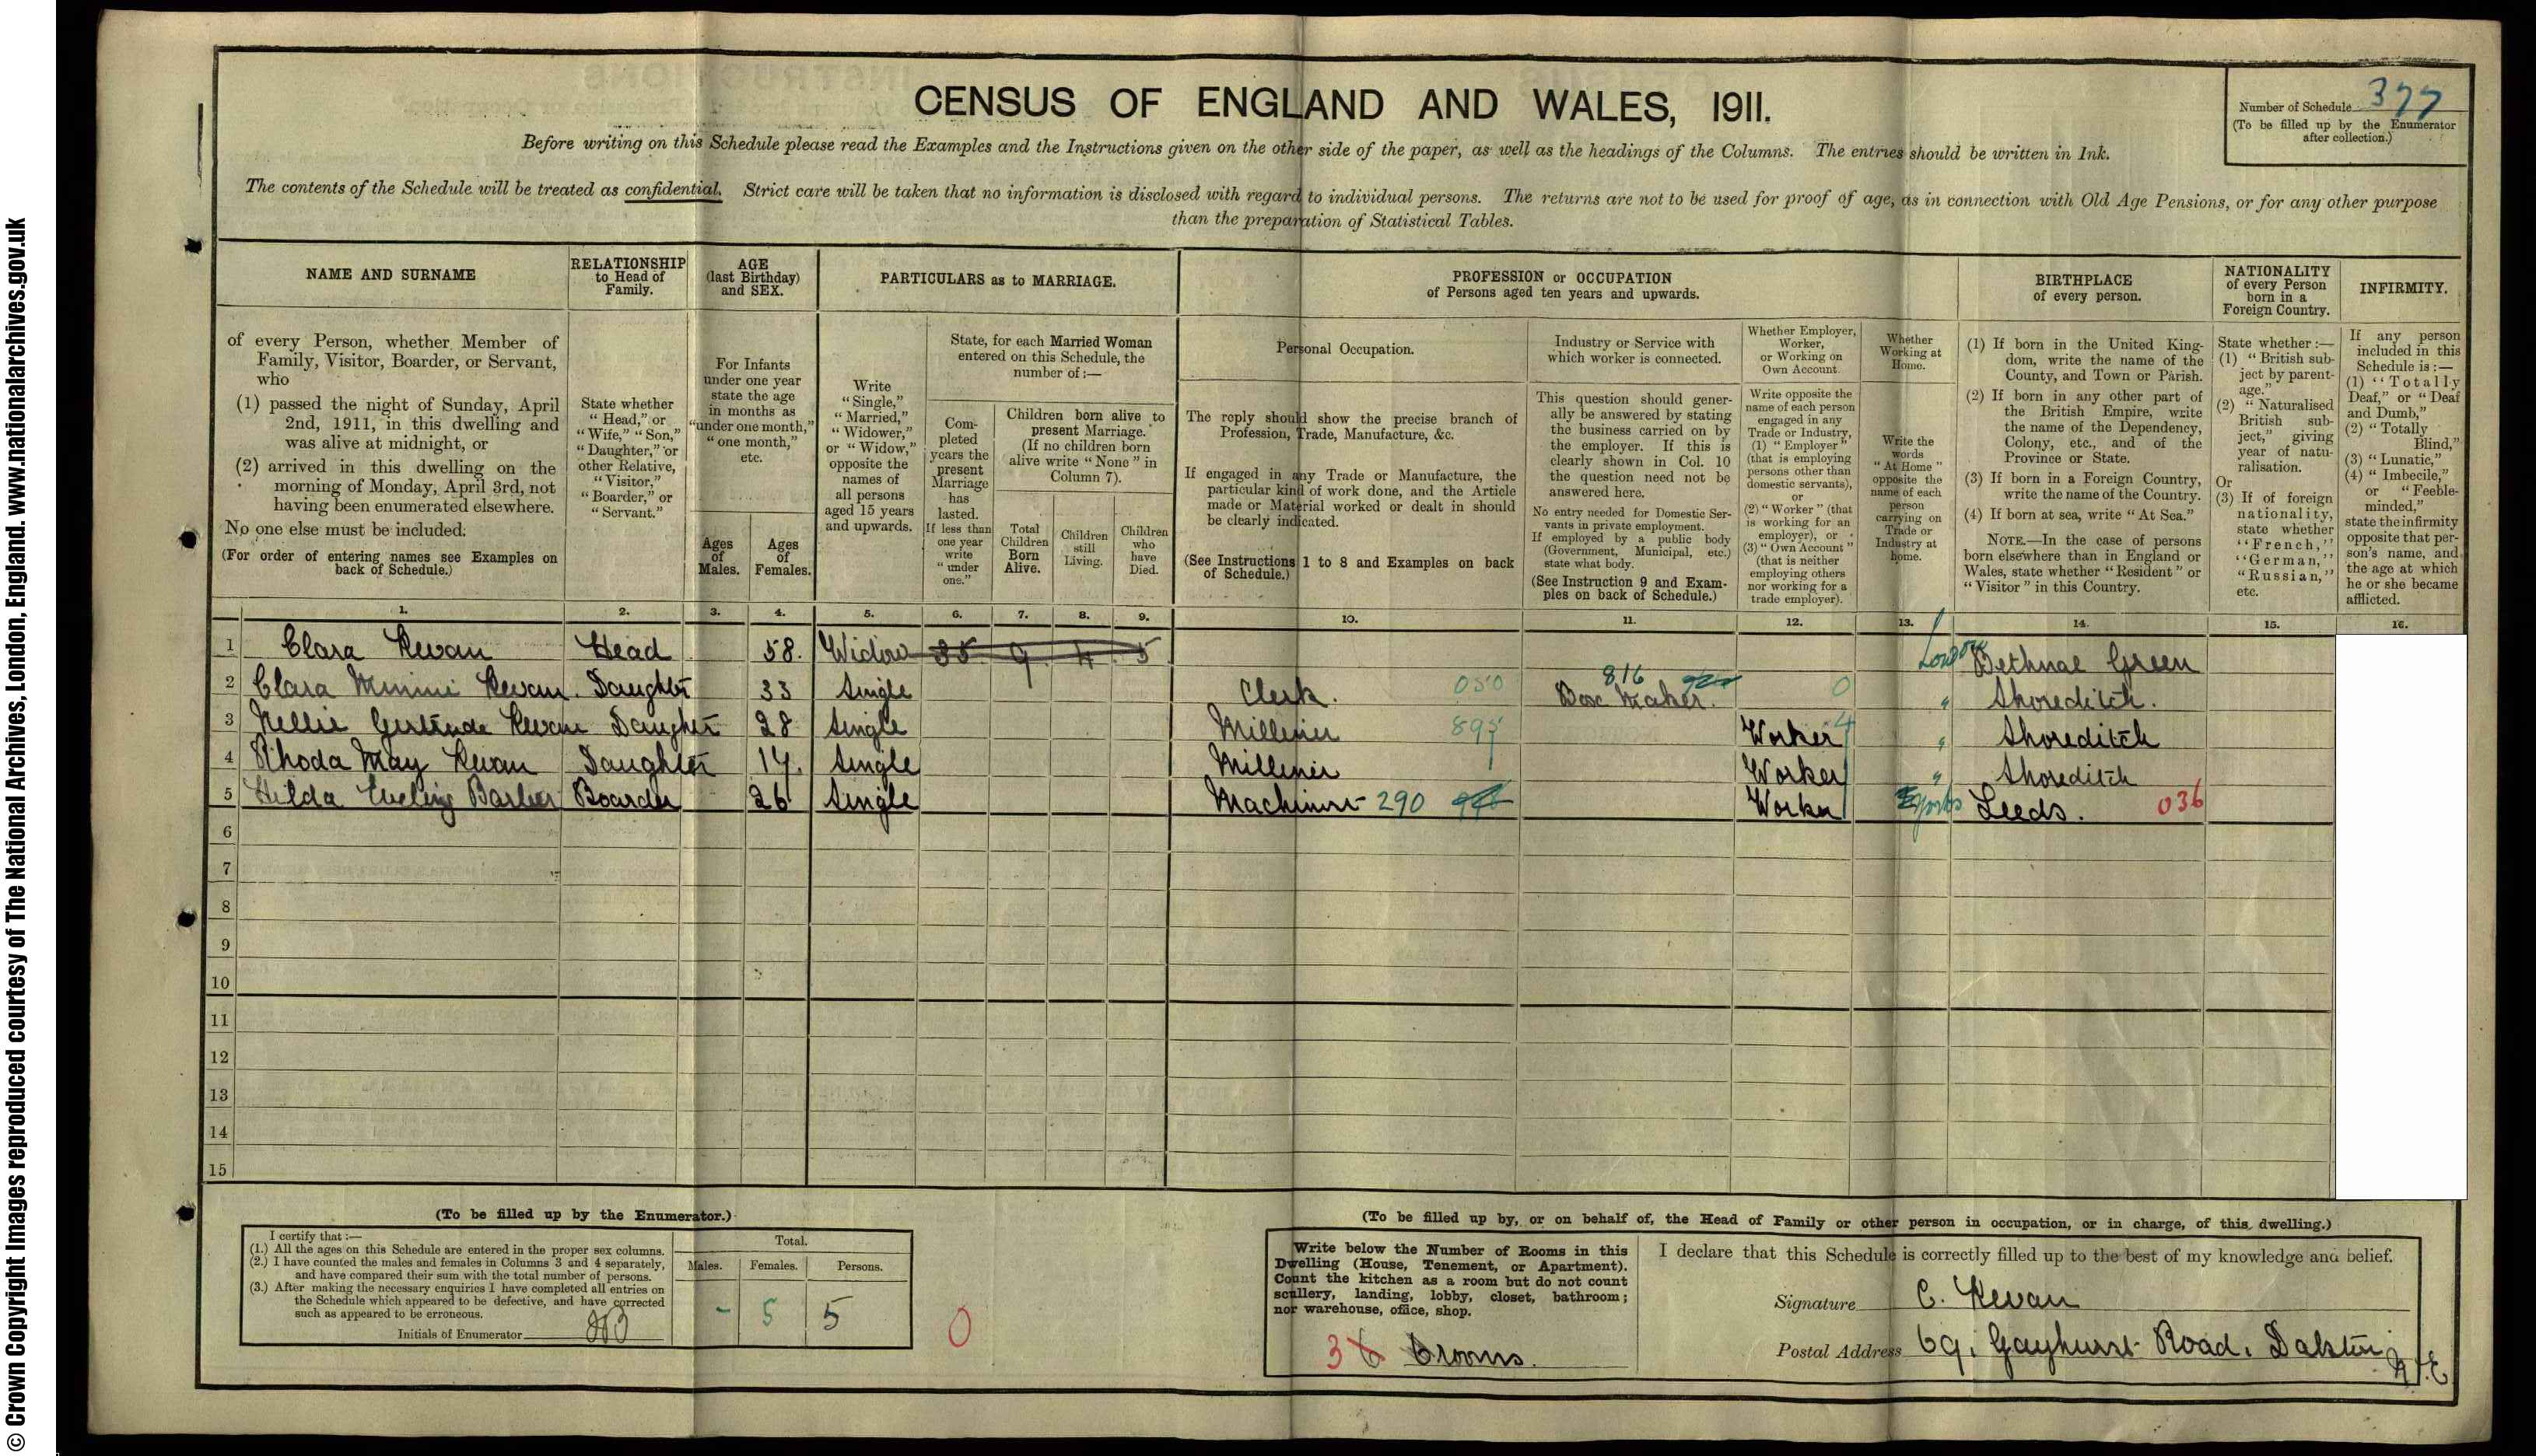 CENSUS OF ENGLAND AND WALES, 1911.
Number of Schedule 377
(To be filled up by the Enumerator
after collection.)
Before writing on this Schedule please read the Examples and the Instructions given on the other side of the paper, as well as the headings of the Columns. The entries should be written in Ink.
The contents of the Schedule will be treated as confidential. Strict care will be taken that no information is disclosed with regard to individual persons. The returns are not to be used for proof of age, as in connection with Old Age Pensions, or for any other purpose
than the preparation of Statistical Tables.
NAME AND SURNAME
of every Person, whether Member of
Family, Visitor, Boarder, or Servant,
who
(1) passed the night of Sunday, April
2nd, 1911, in this dwelling and
was alive at midnight, or
(2) arrived in this dwelling on the
morning of Monday, April 3rd, not
having been enumerated elsewhere.
No one else must be included.
(For order of entering names see Examples on
back of Schedule.)
RELATIONSHIP
to Head of
Family.
State whether
"Head," or
"Wife," "Son,"
"Daughter," or
other Relative,
"Visitor,"
"Boarder," or
"Servant."
AGE
(last Birthday)
and SEX.
For Infants
under one year
state the age
in months as
"under one month,"
"one month,"
etc.
Ages
of
Males.
Ages
of
Females.
PARTICULARS as to MARRIAGE.
Write
"Single,"
"Married,"
"Widower,"
or "Widow,"
opposite the
names of
all persons
aged 15 years
and upwards.
State, for each Married Woman
entered on this Schedule, the
number of:—
Com-
pleted
years the
present
Marriage
has
lasted.
If less than
one year
write
"under
one."
Children born alive to
present Marriage.
(If no children born
alive write "None" in
Column 7).
Total
Children
Born
Alive.
Children
still
Living.
Children
who
have
Died.
PROFESSION or OCCUPATION
of Persons aged ten years and upwards.
Personal Occupation.
The reply should show the precise branch of
Profession, Trade, Manufacture, &c.
If engaged in any Trade or Manufacture, the
particular kind of work done, and the Article
made or Material worked or dealt in should
be clearly indicated.
(See Instructions 1 to 8 and Examples on back
of Schedule.)
Industry or Service with
which worker is connected.
This question should gener-
ally be answered by stating
the business carried on by
the employer. If this is
clearly shown in Col. 10
the question need not be
answered here.
No entry needed for Domestic Ser-
vants in private employment.
If employed by a public body
(Government, Municipal, etc.)
state what body.
(See Instruction 9 and Exam-
ples on back of Schedule.)
Whether Employer,
Worker,
or Working on
Own Account.
Write opposite the
name of each person
engaged in any
Trade or Industry,
(1) "Employer"
(that is employing
persons other than
domestic servants),
or
(2) "Worker" (that
is working for an
employer), or
(3) "Own Account"
(that is neither
employing others
nor working for a
trade employer).
Whether
Working at
Home.
Write the
words
"At Home"
opposite the
name of each
person
carrying on
Trade or
Industry at
home.
BIRTHPLACE
of every person.
(1) If born in the United King-
dom, write the name of the
County, and Town or Parish.
(2) If born in any other part of
the British Empire, write
the name of the Dependency,
Colony, etc., and of the
Province or State.
(3) If born in a Foreign Country,
write the name of the Country.
(4) If born at sea, write "At Sea."
NOTE.—In the case of persons
born elsewhere than in England or
Wales, state whether "Resident" or
"Visitor" in this Country.
NATIONALITY
of every Person
born in a
Foreign Country.
State whether:—
(1) "British sub-
ject by parent-
age."
(2) "Naturalised
British sub-
ject," giving
year of natu-
ralisation.
Or
(3) If of foreign
nationality,
state whether
"French,"
"German,"
"Russian,"
etc.
INFIRMITY.
If any person
included in this
Schedule is:—
(1) "Totally
Deaf," or "Deaf
and Dumb,"
(2) "Totally
Blind,"
(3) "Lunatic,"
(4) "Imbecile,"
or "Feeble-
minded,"
state the infirmity
opposite that per-
son's name, and
the age at which
he or she became
afflicted.
1. 2. 3. 4. 5. 6. 7. 8. 9. 10. 11. 12. 13. 14. 15. 16.
1 Clara Kevan Head 58. Widow 35 9 4 5 London Bethnal Green
2 Clara Minnie Kevan. Daughter 33 Single Clerk. 050 Box Maker. 816 0 " Shoreditch.
3 Nellie Gertrude Kevan Daughter 28 Single Milliner 895 Worker 4 " Shoreditch
4 Rhoda May Kevan Daughter 17. Single Milliner Worker " Shoreditch
5 Hilda Eveline Barber Boarder 26 Single Machinist 290 Worker Yorks Leeds. 036
6
7
8
9
10
11
12
13
14
15
(To be filled up by the Enumerator.)
I certify that:—
(1.) All the ages on this Schedule are entered in the proper sex columns.
(2.) I have counted the males and females in Columns 3 and 4 separately,
and have compared their sum with the total number of persons.
(3.) After making the necessary enquiries I have completed all entries on
the Schedule which appeared to be defective, and have corrected
such as appeared to be erroneous.
Initials of Enumerator
Total.
Males. Females. Persons.
- 5 5
0
(To be filled up by, or on behalf of, the Head of Family or other person in occupation, or in charge, of this dwelling.)
Write below the Number of Rooms in this
Dwelling (House, Tenement, or Apartment).
Count the kitchen as a room but do not count
scullery, landing, lobby, closet, bathroom;
nor warehouse, office, shop.
3 6 6 rooms.
I declare that this Schedule is correctly filled up to the best of my knowledge and belief.
Signature C. Kevan
Postal Address 69, Gayhurst Road, Dalston
N.E.
© Crown Copyright Images reproduced courtesy of The National Archives, London, England. www.nationalarchives.gov.uk